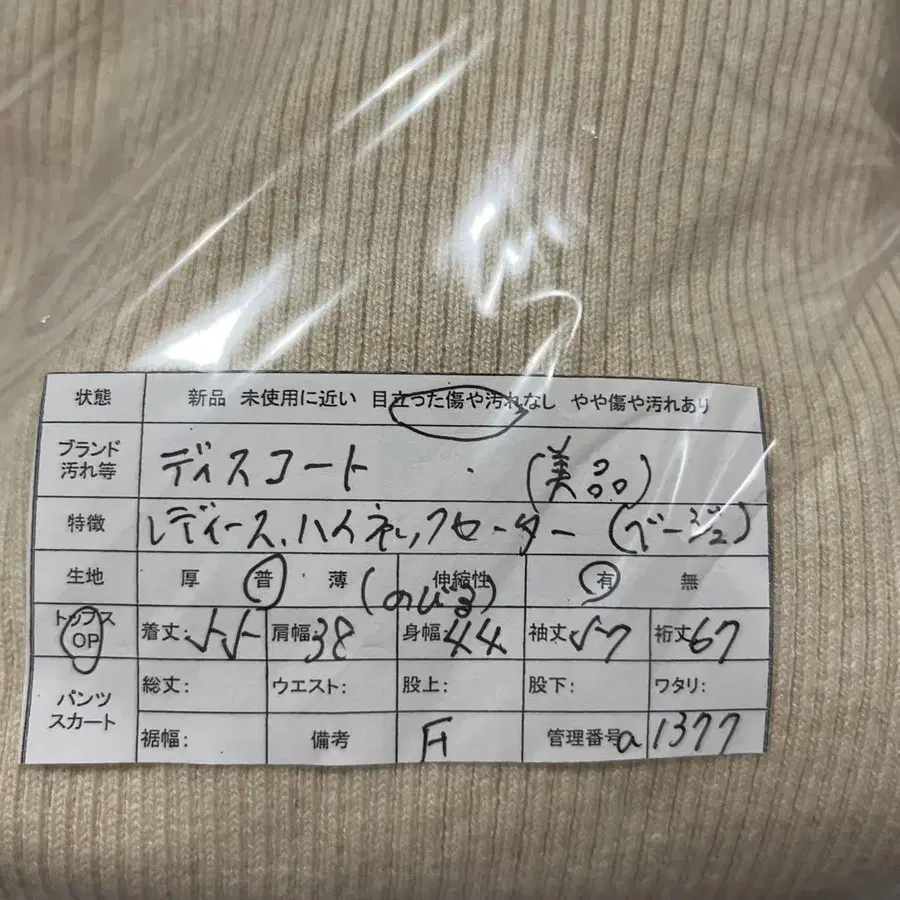 状態 新品 未使用に近い 目立った傷や汚れなし やや傷や汚れあり
ブランド
汚れ等 ディスコート (美品)
特徴 レディース、ハイネックセーター (ベージュ)
生地 厚 普 薄 (のびる) 伸縮性 有 無
トップス
OP 着丈: 55 肩幅: 38 身幅: 44 袖丈: 57 裄丈: 67
パンツ
スカート 総丈: ウエスト: 股上: 股下: ワタリ:
裾幅: 備考 F 管理番号 a1377